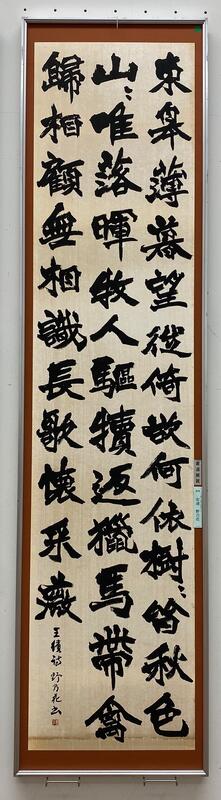 東皋薄暮望徙倚欲何依樹〻皆秋色
山〻唯落暉牧人驅犢返獵馬帶禽
歸相顧無相識長歌懷采薇
王績詩 野乃花書